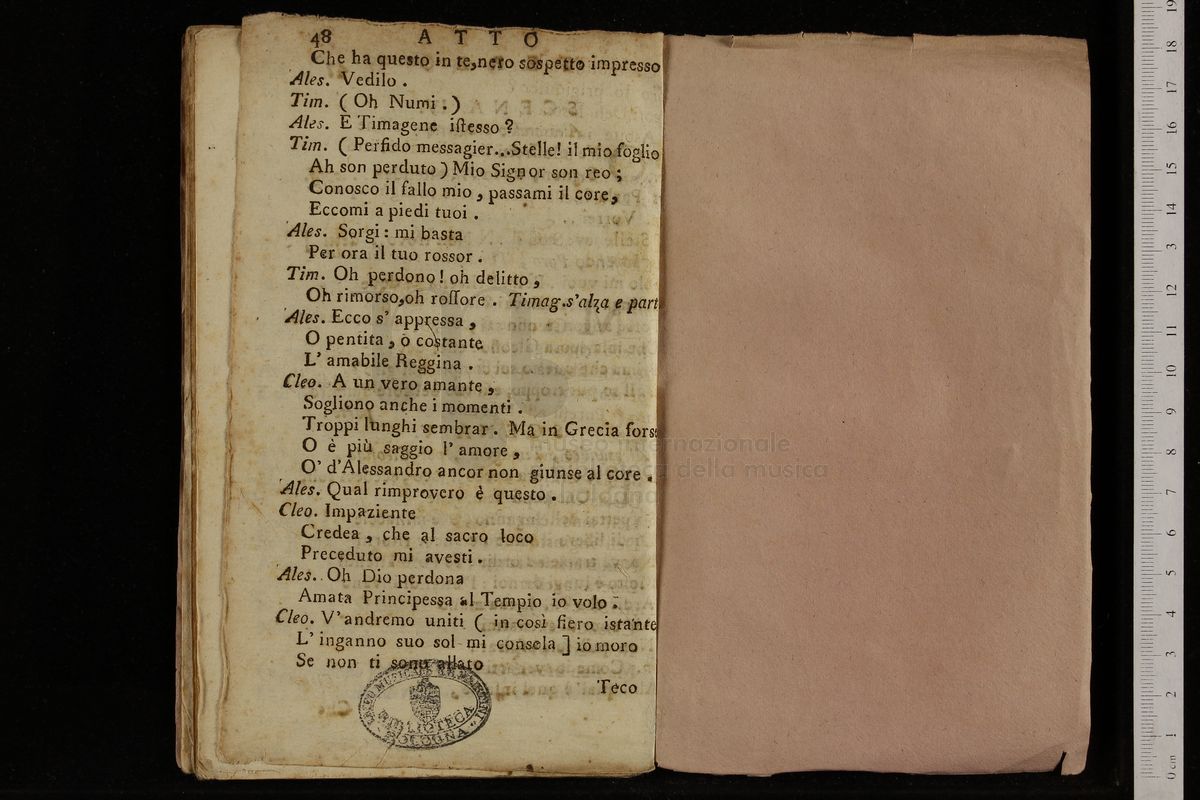 48 ATTO
Che ha questo in te,nero sospetto impresso
Ales. Vedilo .
Tim. ( Oh Numi . )
Ales. E Timagene iſtesso ?
Tim. ( Perfido messagier...Stelle! il mio foglio
Ah son perduto ) Mio Signor son reo ;
Conosco il fallo mio , passami il core,
Eccomi a piedi tuoi .
Ales. Sorgi : mi basta
Per ora il tuo rossor .
Tim. Oh perdono ! oh delitto ,
Oh rimorso,oh roſſore . Timag.s'alza e part
Ales. Ecco s' appressa ,
O pentita , o costante
L' amabile Reggina .
Cleo. A un vero amante ,
Sogliono anche i momenti .
Troppi lunghi sembrar . Ma in Grecia fors
O è più saggio l' amore ,
O' d'Alessandro ancor non giunse al core .
Ales. Qual rimprovero è questo .
Cleo. Impaziente
Credea , che al sacro loco
Preceduto mi avesti .
Ales. Oh Dio perdona
Amata Principessa al Tempio io volo .
Cleo. V' andremo uniti ( in così fiero istante
L' inganno suo sol mi consola ] io moro
Se non ti sono allato
Teco
LICEO MUSICALE
BIBLIOTECA
BOLOGNA
museo internazionale
della musica
bologna
0 cm 1 2 3 4 5 6 7 8 9 10 11 12 13 14 15 16 17 18 19